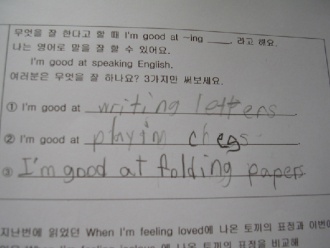 무엇을 잘 한다고 할 때 I'm good at ~ing ____. 라고 해요.
나는 영어로 말을 잘 할 수 있어요.
I'm good at speaking English.
여러분은 무엇을 잘 하나요? 3가지만 써보세요.
① I'm good at writing letters
② I'm good at playim chess
③ I'm good at folding papers
지난번에 읽었던 When I'm feeling loved에 나온 토끼의 표정과 이번에
에 나온 토끼의 표정을 비교해